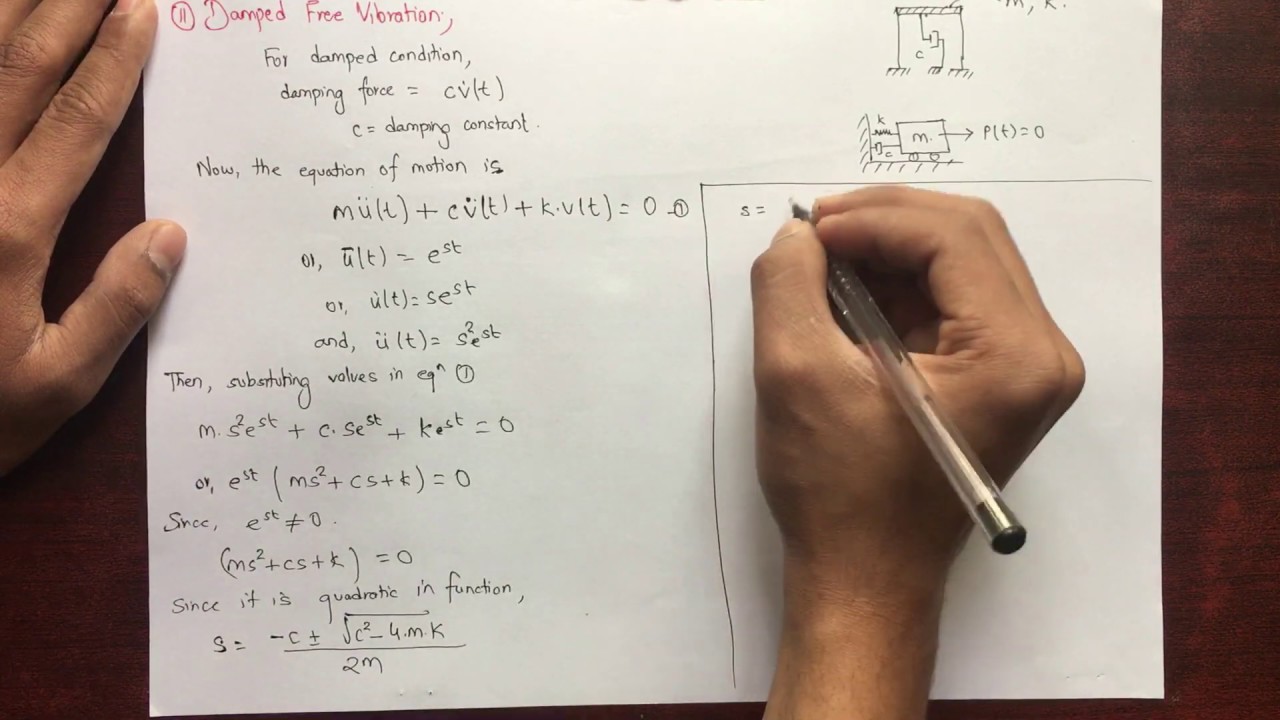 ⑪ Damped Free Vibration;
For damped condition,
damping force = cv̇(t)
c = damping constant.
Now, the equation of motion is
mü(t) + cv̇(t) + k.v(t) = 0 -①
or, ū(t) = e^st
or, u̇(t) = se^st
and, ü(t) = s²e^st
Then, substituting values in eqⁿ ①
m. s²e^st + c. se^st + ke^st = 0
or, e^st (ms²+cs+k) = 0
Since, e^st ≠ 0.
(ms²+cs+k) = 0
Since it is quadratic in function,
s = -c ± √c²-4.m.k
2m
m, k.
c
k
c
m.
P(t)=0
s =